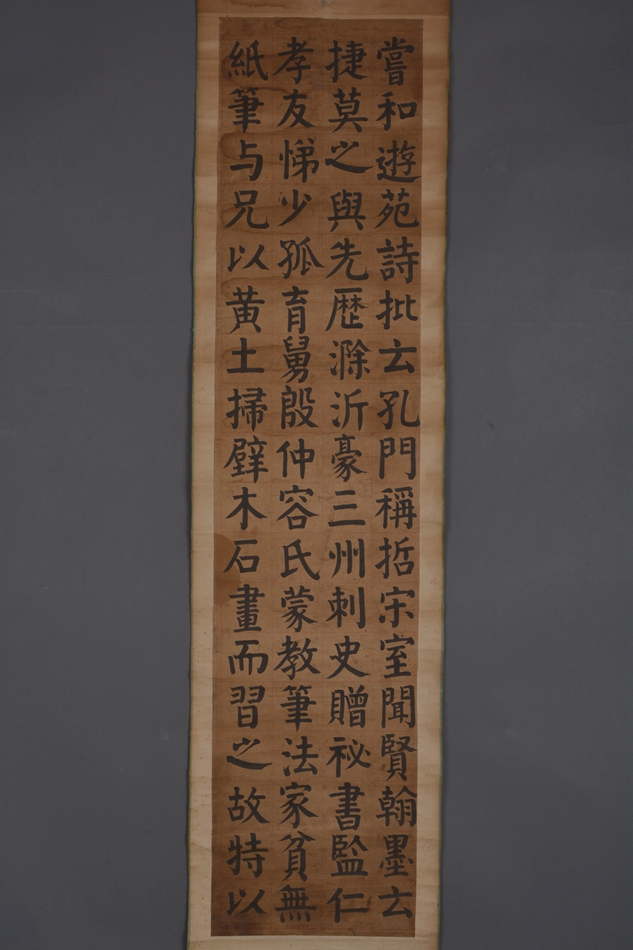 嘗和遊苑詩批云孔門稱哲宋室聞賢翰墨云
捷莫之與先歷滁沂豪三州刺史贈祕書監仁
孝友悌少孤育舅殷仲容氏蒙教筆法家貧無
紙筆与兄以黄土掃壁木石畫而習之故特以